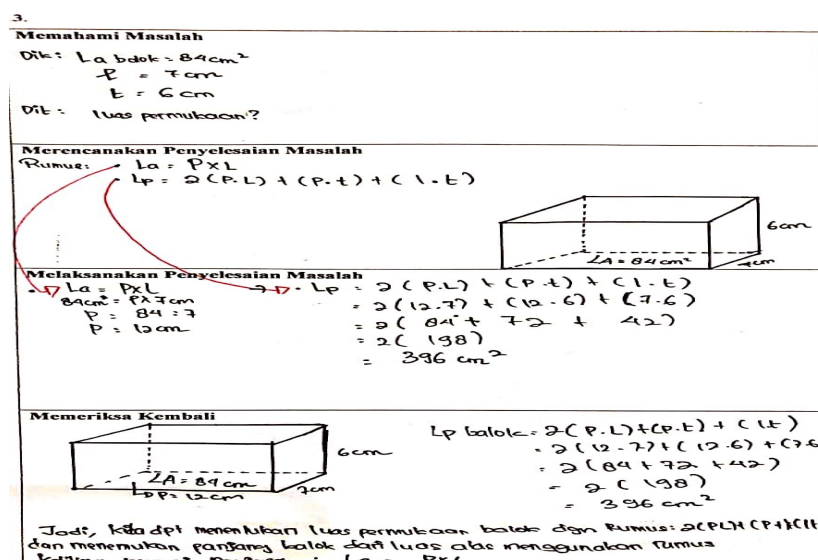 3.
Memahami Masalah
Dik : La balok = 84 cm²
l = 7 cm
t = 6 cm
Dit : luas permukaan ?
Merencanakan Penyelesaian Masalah
Rumus : • La = P x L
• Lp = 2 (P. L) + (P. t) + ( l . t)
6 cm
LA = 84 cm²
7cm
Melaksanakan Penyelesaian Masalah
• La = P x L
84cm² = P x 7 cm
P = 84 : 7
P = 12 cm
• Lp = 2 (P. L) + (P. t) + (l. t)
= 2 (12.7) + (12.6) + (7.6)
= 2 ( 84 + 72 + 42)
= 2 ( 198)
= 396 cm²
Memeriksa Kembali
6 cm
LA = 84 cm
P = 12 cm
7cm
Lp balok = 2 (P. L) + (P. t) + ( lt)
= 2 (12 . 7) + (12 .6) + (7.6
= 2 (84 + 72 + 42)
= 2 ( 198)
= 396 cm²
Jadi, kita dpt menentukan luas permukaan balok dgn Rumus : 2(PL)+(P+)+(lt
dan menemukan panjang balok dari luas alas menggunakan rumus